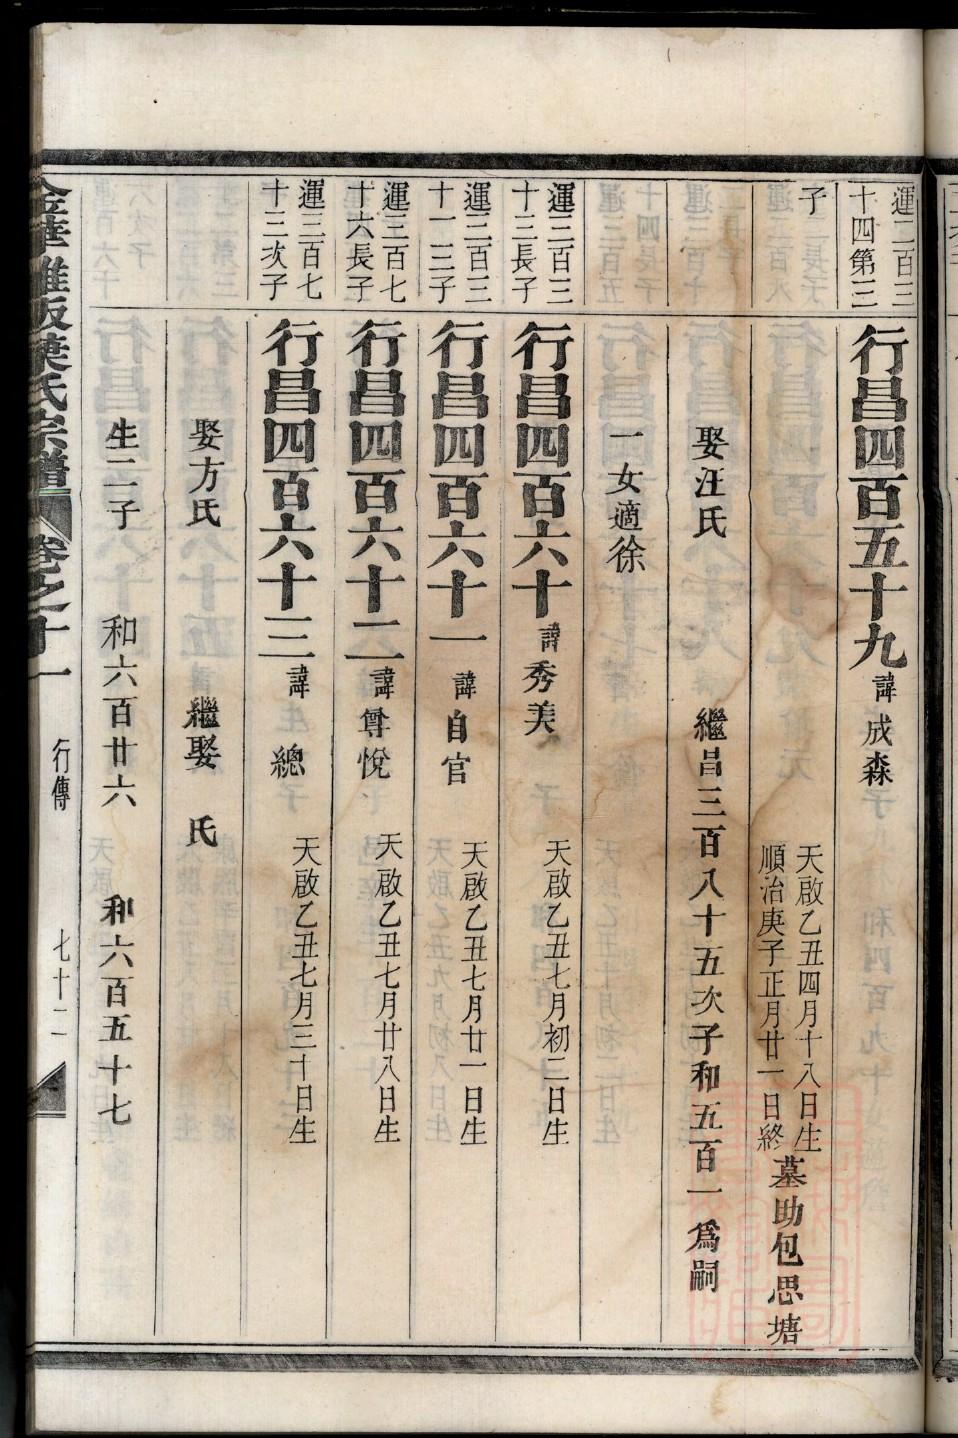 運二百三
十四第三
子
行昌四百五十九 諱 成森
天啟乙丑四月十八日生
順治庚子正月廿一日終
墓助包思塘
娶汪氏 繼昌三百八十五次子和五百一為嗣
一女適徐
運三百三
十三長子
行昌四百六十 諱 秀美
天啟乙丑七月初二日生
運三百三
十一三子
行昌四百六十一 諱 自官
天啟乙丑七月廿一日生
運三百七
十六長子
行昌四百六十二 諱 尊悅
天啟乙丑七月廿八日生
運三百七
十三次子
行昌四百六十三 諱 總
天啟乙丑七月三十日生
娶方氏 繼娶 氏
生二子 和六百廿六 和六百五十七
金華 氏宗譜 卷之十一 行傳 七十二